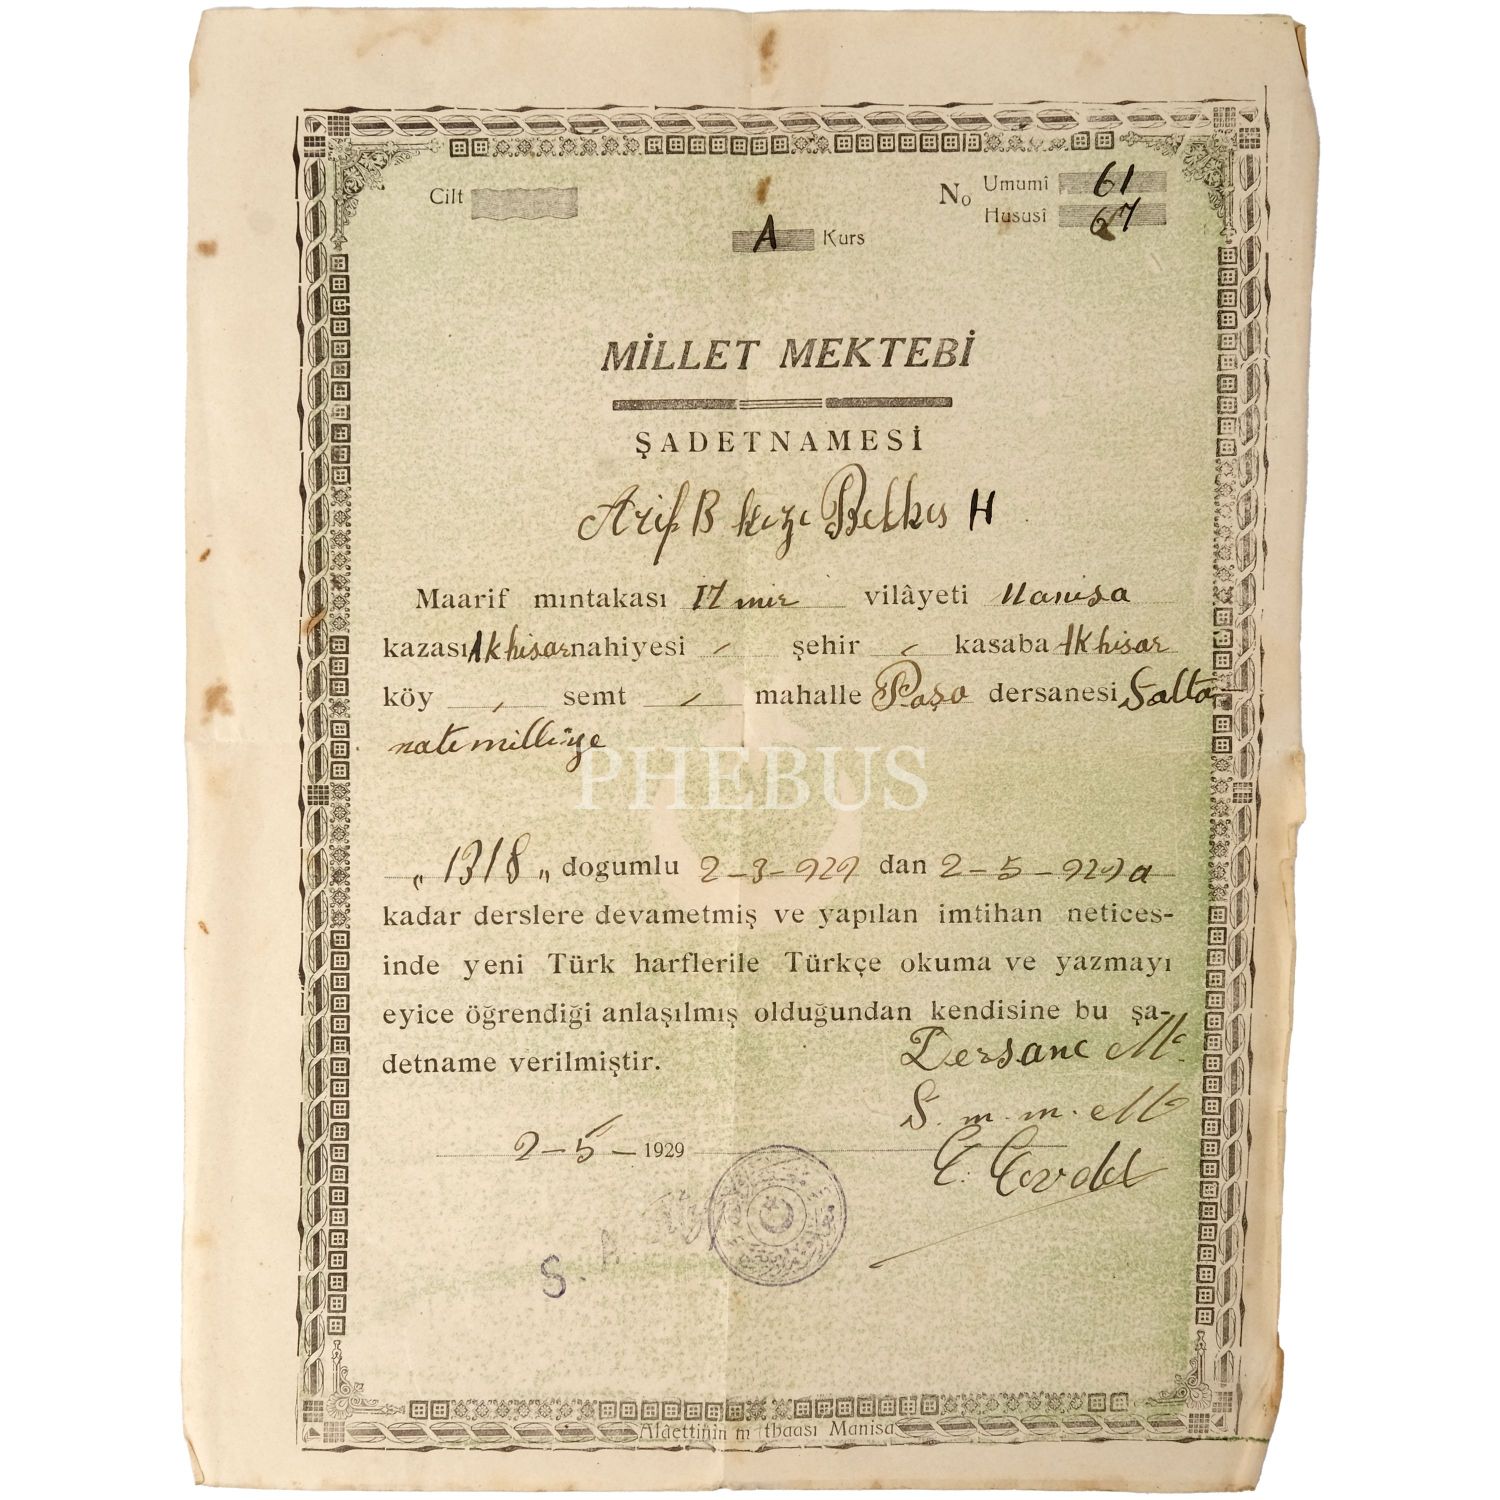 Cilt
No Umumî 61
Hususî 67
A Kurs
MİLLET MEKTEBİ
ŞADETNAMESİ
Arif B kızı Belkıs H
Maarif mıntakası İzmir vilâyeti Manisa
kazası Akhisar nahiyesi şehir kasaba Akhisar
köy semt mahalle Paşa dersanesi Salta-
natı milliye
PHEBUS
„1318„ dogumlu 2-3-929 dan 2-5-929 a
kadar derslere devametmiş ve yapılan imtihan netices-
inde yeni Türk harflerile Türkçe okuma ve yazmayı
eyice öğrendiği anlaşılmış olduğundan kendisine bu şa-
detname verilmiştir.
Dersane M.
S. m. m. M
2-5-1929
Alaettinin m tbaası Manisa